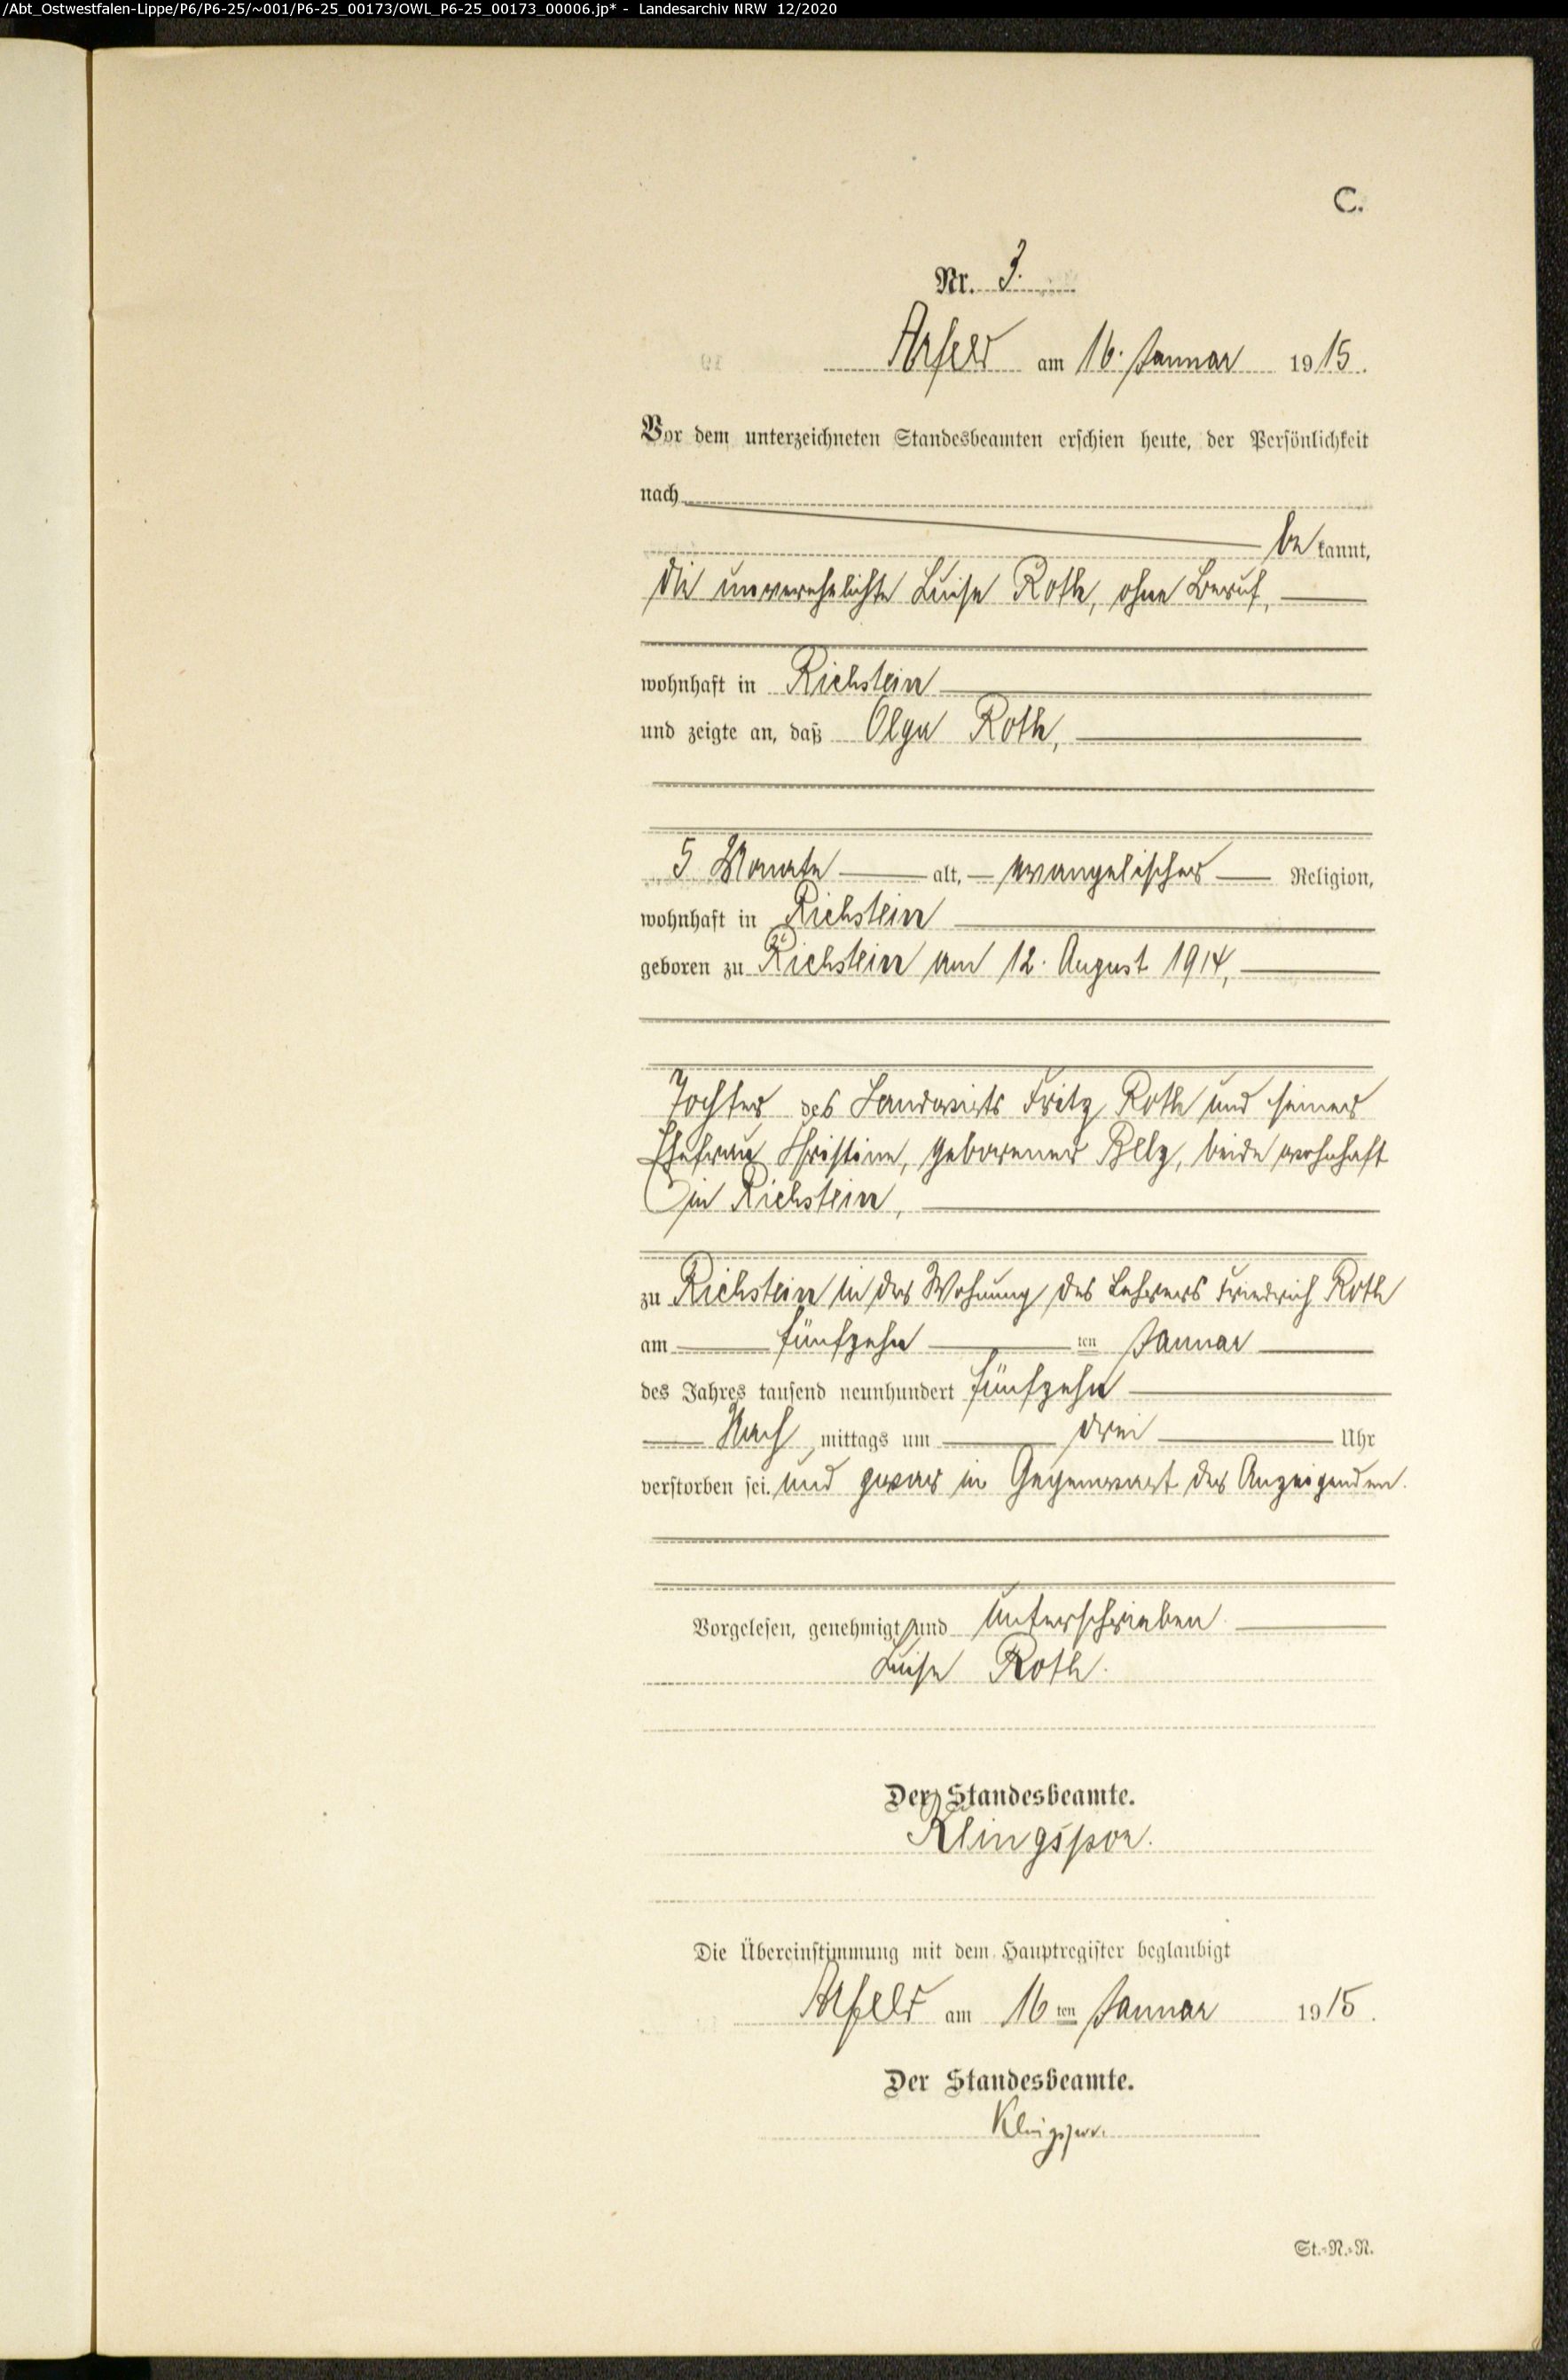 /Abt_Ostwestfalen-Lippe/P6/P6-25/~001/P6-25_00173/OWL_P6-25_00173_00006.jp* - Landesarchiv NRW 12/2020
C.
Nr. 3.
Arfeld am 16. Januar 1915.
Vor dem unterzeichneten Standesbeamten erschien heute, der Persönlichkeit
nach
bekannt,
die unverehelichte Luise Roth, ohne Beruf,
wohnhaft in Richstein
und zeigte an, daß Olga Roth,
5 Monate alt, evangelischer Religion,
wohnhaft in Richstein
geboren zu Richstein am 12. August 1914,
Tochter des Landwirts Fritz Roth und seiner
Ehefrau Christine, geborener Belz, beide wohnhaft
in Richstein,
zu Richstein in der Wohnung des Lehrers Friedrich Roth
am fünfzehn ten Januar
des Jahres tausend neunhundert fünfzehn
Nach mittags um drei Uhr
verstorben sei. und zwar in Gegenwart der Anzeigenden.
Vorgelesen, genehmigt und unterschrieben
Luise Roth.
Der Standesbeamte.
Klingspor.
Die Übereinstimmung mit dem Hauptregister beglaubigt
Arfeld am 16 ten Januar 1915.
Der Standesbeamte.
Klingspor.
St.-R.-R.